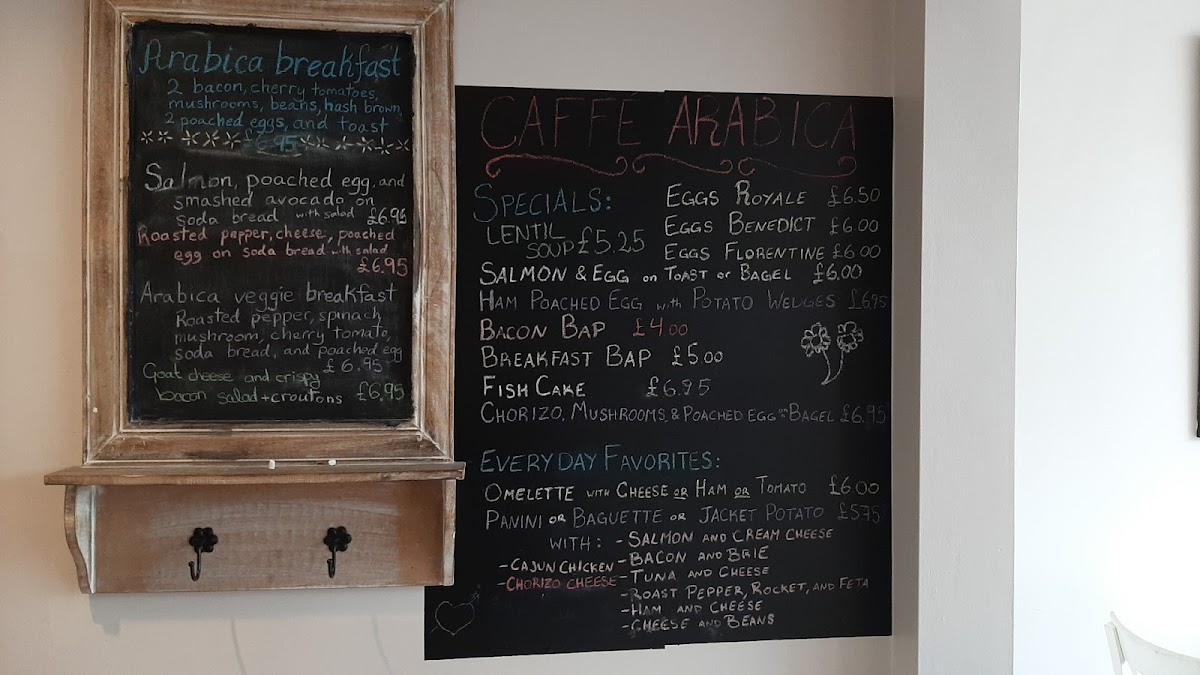 Arabica breakfast
2 bacon, cherry tomatoes,
mushrooms, beans, hash brown,
2 poached eggs, and toast
£6.95
Salmon, poached egg, and
smashed avocado on
soda bread with salad £6.95
Roasted pepper, cheese, poached
egg on soda bread with salad
£6.95
Arabica veggie breakfast
Roasted pepper, spinach
mushroom, cherry tomato,
soda bread, and poached egg
£6.95
Goat cheese and crispy
bacon salad + croutons £6.95
CAFFÉ ARABICA
SPECIALS:
LENTIL
SOUP £5.25
EGGS ROYALE £6.50
EGGS BENEDICT £6.00
EGGS FLORENTINE £6.00
SALMON & EGG on TOAST or BAGEL £6.00
HAM POACHED EGG with POTATO WEDGES £6.95
BACON BAP £4.00
BREAKFAST BAP £5.00
FISH CAKE £6.95
CHORIZO, MUSHROOMS, & POACHED EGG on BAGEL £6.95
EVERYDAY FAVORITES:
OMELETTE WITH CHEESE OR HAM OR TOMATO £6.00
PANINI OR BAGUETTE OR JACKET POTATO £5.75
WITH: - SALMON AND CREAM CHEESE
- BACON AND BRIE
- TUNA AND CHEESE
- ROAST PEPPER, ROCKET, AND FETA
- HAM AND CHEESE
- CHEESE AND BEANS
- CAJUN CHICKEN
- CHORIZO CHEESE